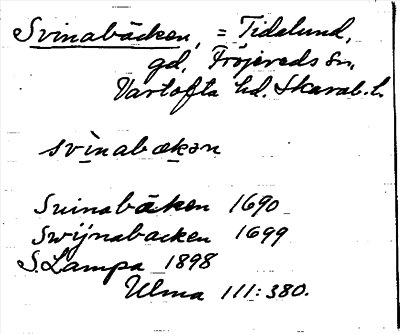 Svinabäcken, = Tidalund,
gd, Fröjereds sn,
Vartofta hd. Skarab. l.
svìnabækən
Suinabäken 1690
Swijnabacken 1699
S. Lampa 1898
Ulma 111:380.